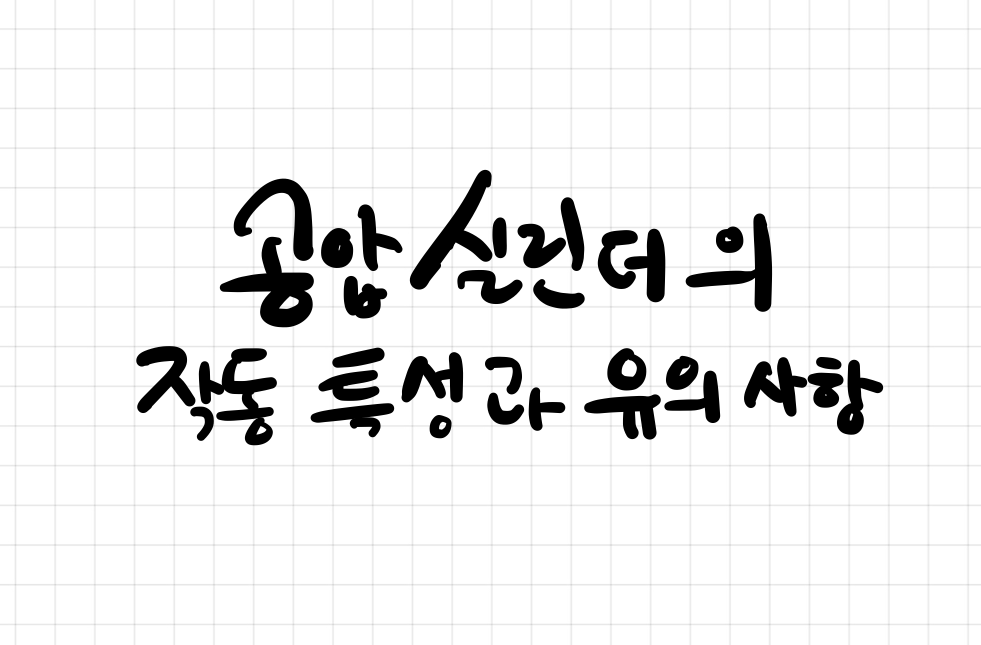 공압 실린더의
작동 특성과 유의사항